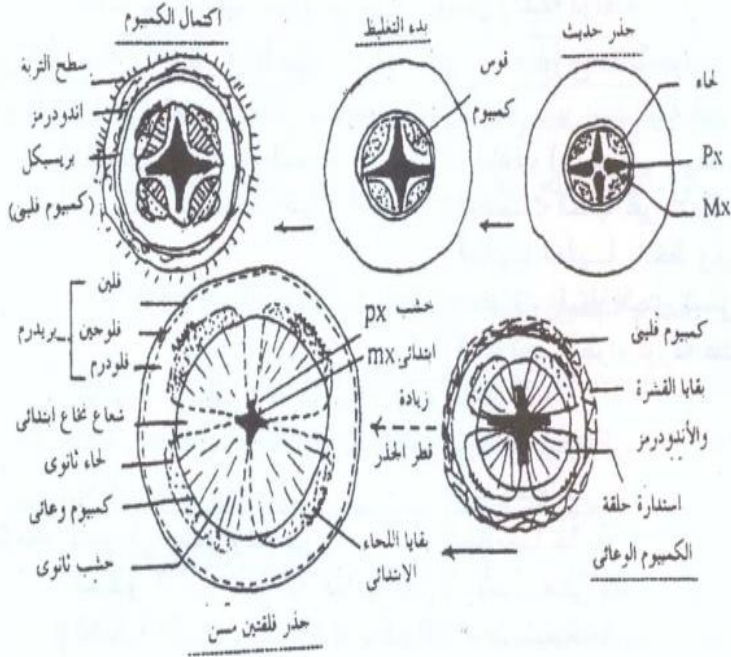 جذر حديث
لحاء
Px
Mx
بدء التغليظ
قوس
كمبيوم
اكتمال الكمبيوم
سطح التربة
اندودرمز
بريسيكل
(كمبيوم فلينى)
كمبيوم فلينى
بقايا القشرة
والأندودرمز
استدارة حلقة
الكمبيوم الوعائى
زيادة
قطر الجذر
خشب px
ابتدائى mx
بقايا اللحاء
الابتدائى
فلين
فلوجين
فلودرم
بريدرم
شعاع نخاع ابتدائى
لحاء ثانوى
كمبيوم وعائى
خشب ثانوى
جذر فلقتين مسن